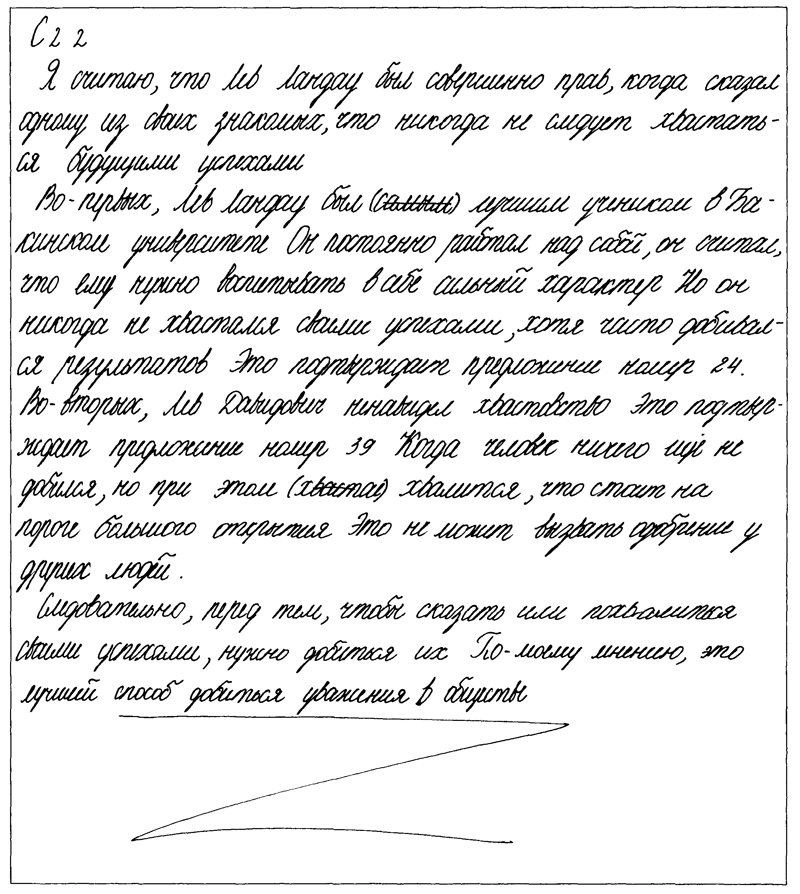 С2 2
Я считаю, что Лев Ландау был совершенно прав, когда сказал
одному из своих знакомых, что никогда не следует хвастать-
ся будущими успехами
Во-первых, Лев Ландау был (самым) лучшим учеником в Ба-
кинском университете Он постоянно работал над собой, он считал,
что ему нужно воспитывать в себе сильный характер Но он
никогда не хвастался своими успехами, хотя часто добивал-
ся результатов Это подтверждает предложение номер 24.
Во-вторых, Лев Давидович ненавидел хвастовство Это подтвер-
ждает предложение номер 39 Когда человек ничего ещё не
добился, но при этом (хвастал) хвалится, что стоит на
пороге большого открытия Это не может вызвать одобрение у
других людей.
Следовательно, перед тем, чтобы сказать или похвалиться
своими успехами, нужно добиться их По-моему мнению, это
лучший способ добиться уважения в общества